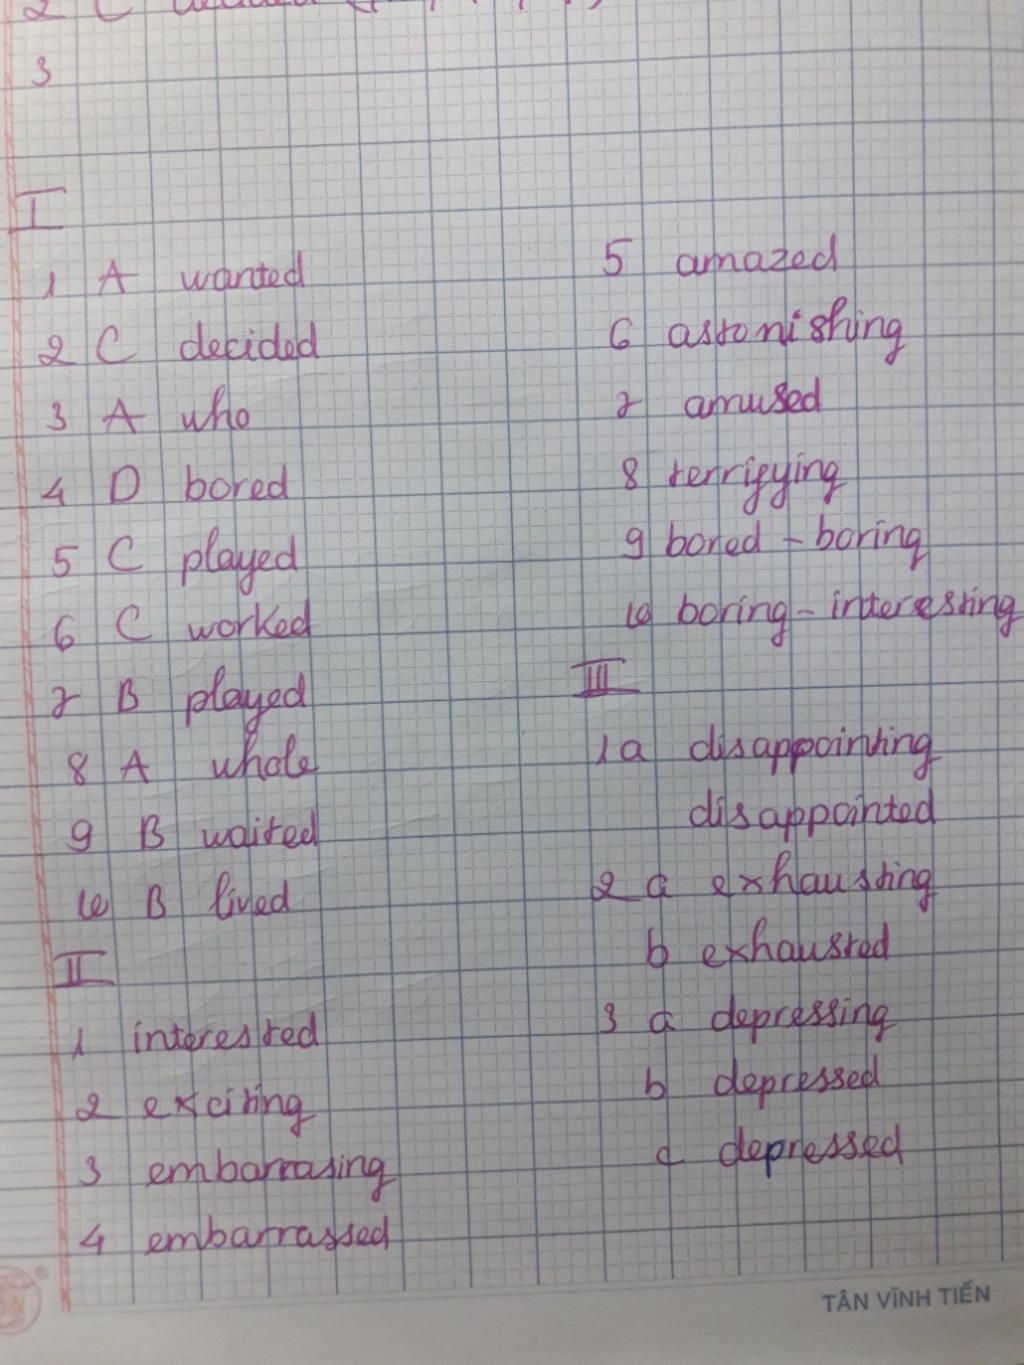 2 C
3
I
1 A wanted
2 C decided
3 A who
4 D bored
5 C played
6 C worked
7 B played
8 A whole
9 B waited
10 B lived
II
1 interested
2 exciting
3 embarrasing
4 embarrassed
5 amazed
6 astonishing
7 amused
8 terrifying
9 bored - boring
10 boring - interesting
III
1a disappointing
disappointed
2 a exhausting
b exhausted
3 a depressing
b depressed
c depressed
TÂN VĨNH TIẾN